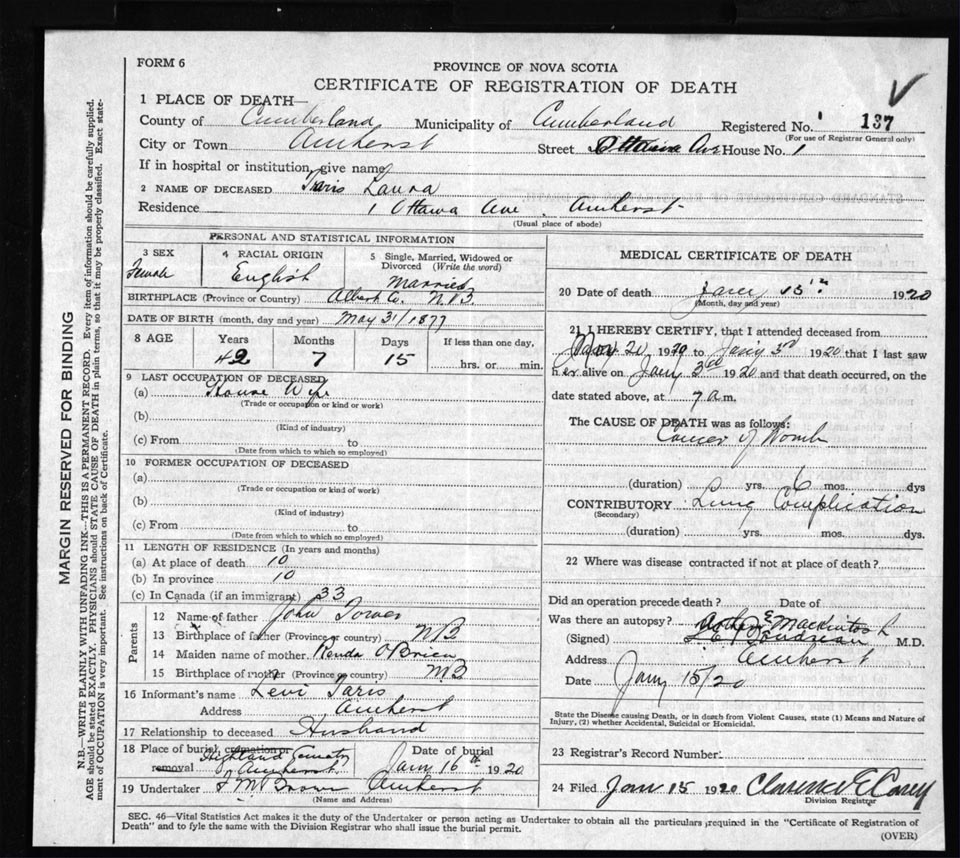 FORM 6
PROVINCE OF NOVA SCOTIA
CERTIFICATE OF REGISTRATION OF DEATH
1 PLACE OF DEATH—
County of Cumberland Municipality of Cumberland Registered No. 137
(For use of Registrar General only)
City or Town Amherst Street Ottawa Ave House No. 1
If in hospital or institution, give name
2 NAME OF DECEASED Laura
Residence 1 Ottawa Ave. Amherst
(Usual place of abode)
PERSONAL AND STATISTICAL INFORMATION
3 SEX
Female
4 RACIAL ORIGIN
English
5 Single, Married, Widowed or Divorced (Write the word)
Married
BIRTHPLACE (Province or Country) Albert Co. N.B
DATE OF BIRTH (month, day and year) May 31/1877
8 AGE Years Months Days If less than one day,
42 7 15 hrs. or min.
9 LAST OCCUPATION OF DECEASED
(a) House Wife
(Trade or occupation or kind or work)
(b)
(Kind of industry)
(c) From to
(Date from which to which so employed)
10 FORMER OCCUPATION OF DECEASED
(a)
(Trade or occupation or kind of work)
(b)
(Kind of industry)
(c) From to
(Date from which to which so employed)
11 LENGTH OF RESIDENCE (In years and months)
(a) At place of death 10
(b) In province 10
(c) In Canada (if an immigrant) 33
Parents
12 Name of father John
13 Birthplace of father (Province or country) NB
14 Maiden name of mother O'Brien
15 Birthplace of mother (Province or country) NB
16 Informant's name Levi Taris
Address Amherst
17 Relationship to deceased Husband
18 Place of burial, cremation or removal Highland Cemetery
Amherst
Date of burial
Jany 16th 1920
19 Undertaker Brown Amherst
(Name and Address)
MEDICAL CERTIFICATE OF DEATH
20 Date of death Jany 15th 1920
(Month, day and year)
21 I HEREBY CERTIFY, that I attended deceased from
20 1920 to Jany 3rd 1920 that I last saw
her alive on Jany 3rd 1920 and that death occurred, on the
date stated above, at 7 a.m.
The CAUSE OF DEATH was as follows:
Cancer of Womb
(duration) yrs. 6 mos. dys
CONTRIBUTORY Lung Complication
(Secondary)
(duration) yrs. mos. dys.
22 Where was disease contracted if not at place of death?
Did an operation precede death? Date of
Was there an autopsy? Mackintosh
(Signed) Boudreau M.D.
Address Amherst
Date Jany 15/20
State the Disease causing Death, or in death from Violent Causes, state (1) Means and Nature of
Injury, (2) whether Accidental, Suicidal or Homicidal.
23 Registrar's Record Number
24 Filed Jan 15 1920 Clarence E Casey
Division Registrar
SEC. 46—Vital Statistics Act makes it the duty of the Undertaker or person acting as Undertaker to obtain all the particulars required in the "Certificate of Registration of
Death" and to fyle the same with the Division Registrar who shall issue the burial permit.
(OVER)
MARGIN RESERVED FOR BINDING
N.B.—WRITE PLAINLY WITH UNFADING INK—THIS IS A PERMANENT RECORD. Every item of information should be carefully supplied.
AGE should be stated EXACTLY. PHYSICIANS should STATE CAUSE OF DEATH in plain terms, so that it may be properly classified. Exact state-
ment of OCCUPATION is very important. See instructions on back of Certificate.